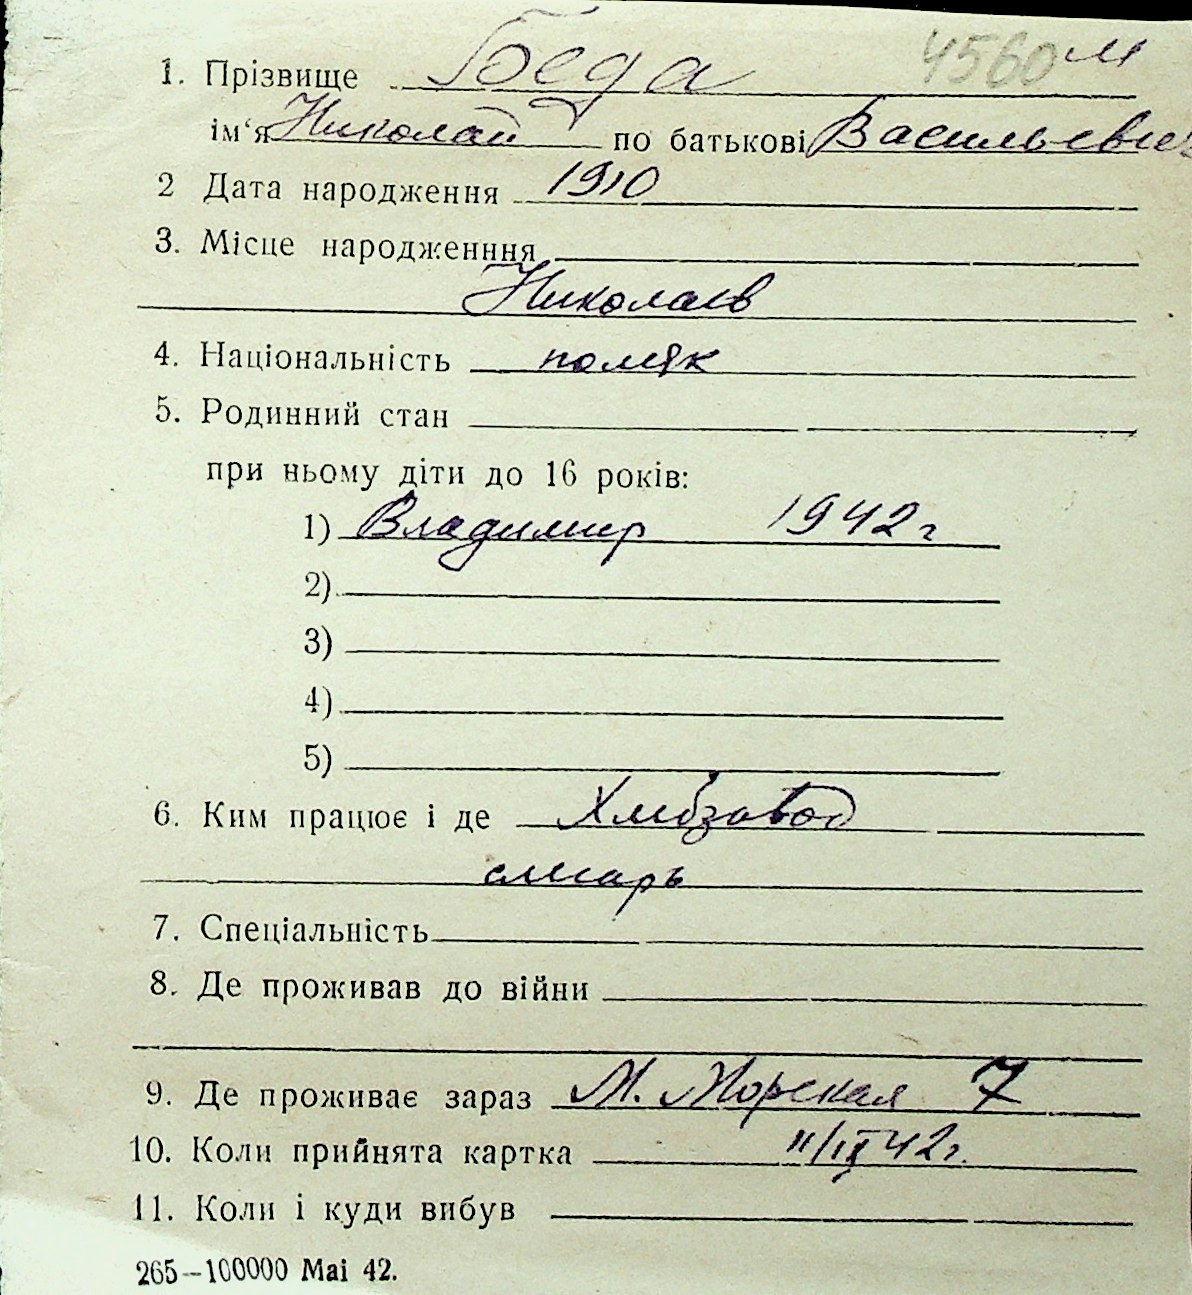 1. Прізвище Беда 4560 м
ім‘я Николай по батькові Васильевич
2 Дата народження 1910
3. Місце народженння
Николаев
4. Національність поляк
5. Родинний стан
при ньому діти до 16 років:
1) Владимир 1942г
2)
3)
4)
5)
6. Ким працює і де Хлебзавод
слесарь
7. Спеціальність
8. Де проживав до війни
9. Де проживає зараз М. Морская 7
10. Коли прийнята картка 11/IX 42г.
11. Коли і куди вибув
265—100000 Mai 42.